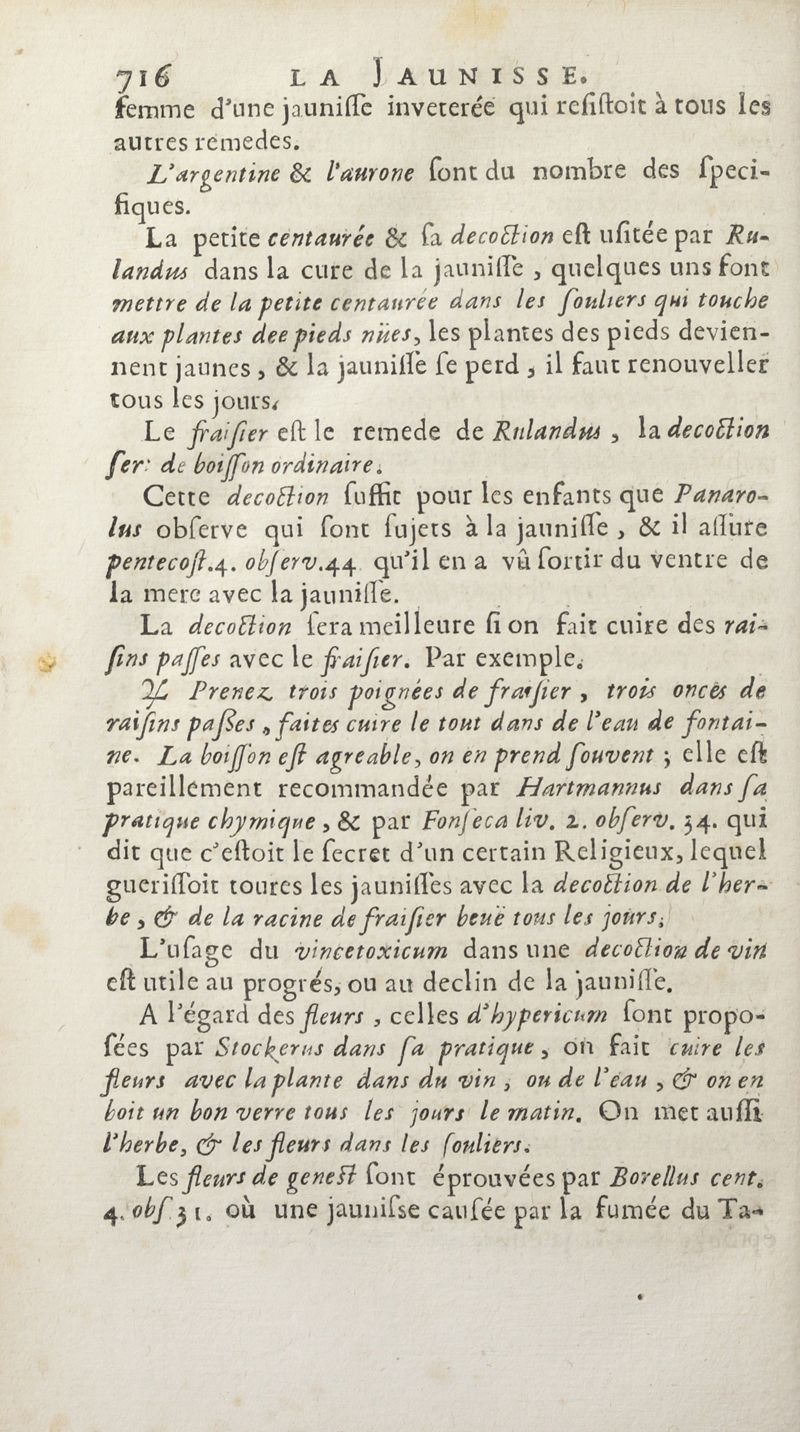 716 LA JAUNISSE.
femme d'une jauniſſe inveterée qui reſiſtoit à tous les
autres remedes.
L'argentine & l'aurone ſont du nombre des ſpeci-
fiques.
La petite centaurée & ſa decoction eſt uſitée par Ru-
landus dans la cure de la jauniſſe, quelques uns font
mettre de la petite centaurée dans les ſouliers qui touche
aux plantes dee pieds nües, les plantes des pieds devien-
nent jaunes, & la jauniſſe ſe perd, il faut renouveller
tous les jours.
Le fraiſier eſt le remede de Rulandus, la decoction
ſert de boiſſon ordinaire.
Cette decoction ſuffit pour les enfants que Panaro-
lus obſerve qui ſont ſujets à la jauniſſe, & il aſſure
pentecoſt.4. obſerv.44 qu'il en a vû ſortir du ventre de
la mere avec la jauniſſe.
La decoction ſera meilleure ſi on fait cuire des rai-
ſins paſſes avec le fraiſier. Par exemple.
♃ Prenez trois poignées de fraiſier, trois onces de
raiſins paſſes, faites cuire le tout dans de l'eau de fontai-
ne. La boiſſon eſt agreable, on en prend ſouvent; elle eſt
pareillement recommandée par Hartmannus dans ſa
pratique chymique, & par Fonſeca liv. 2. obſerv. 34. qui
dit que c'eſtoit le ſecret d'un certain Religieux, lequel
gueriſſoit toutes les jauniſſes avec la decoction de l'her-
be, & de la racine de fraiſier beuë tous les jours.
L'uſage du vincetoxicum dans une decoction de vin
eſt utile au progrés, ou au declin de la jauniſſe.
A l'égard des fleurs, celles d'hypericum ſont propo-
ſées par Stockerus dans ſa pratique, on fait cuire les
fleurs avec la plante dans du vin, ou de l'eau, & on en
boit un bon verre tous les jours le matin. On met auſſi
l'herbe, & les fleurs dans les ſouliers.
Les fleurs de geneſt ſont éprouvées par Borellus cent.
4. obſ. 31. où une jauniſse cauſée par la fumée du Ta-